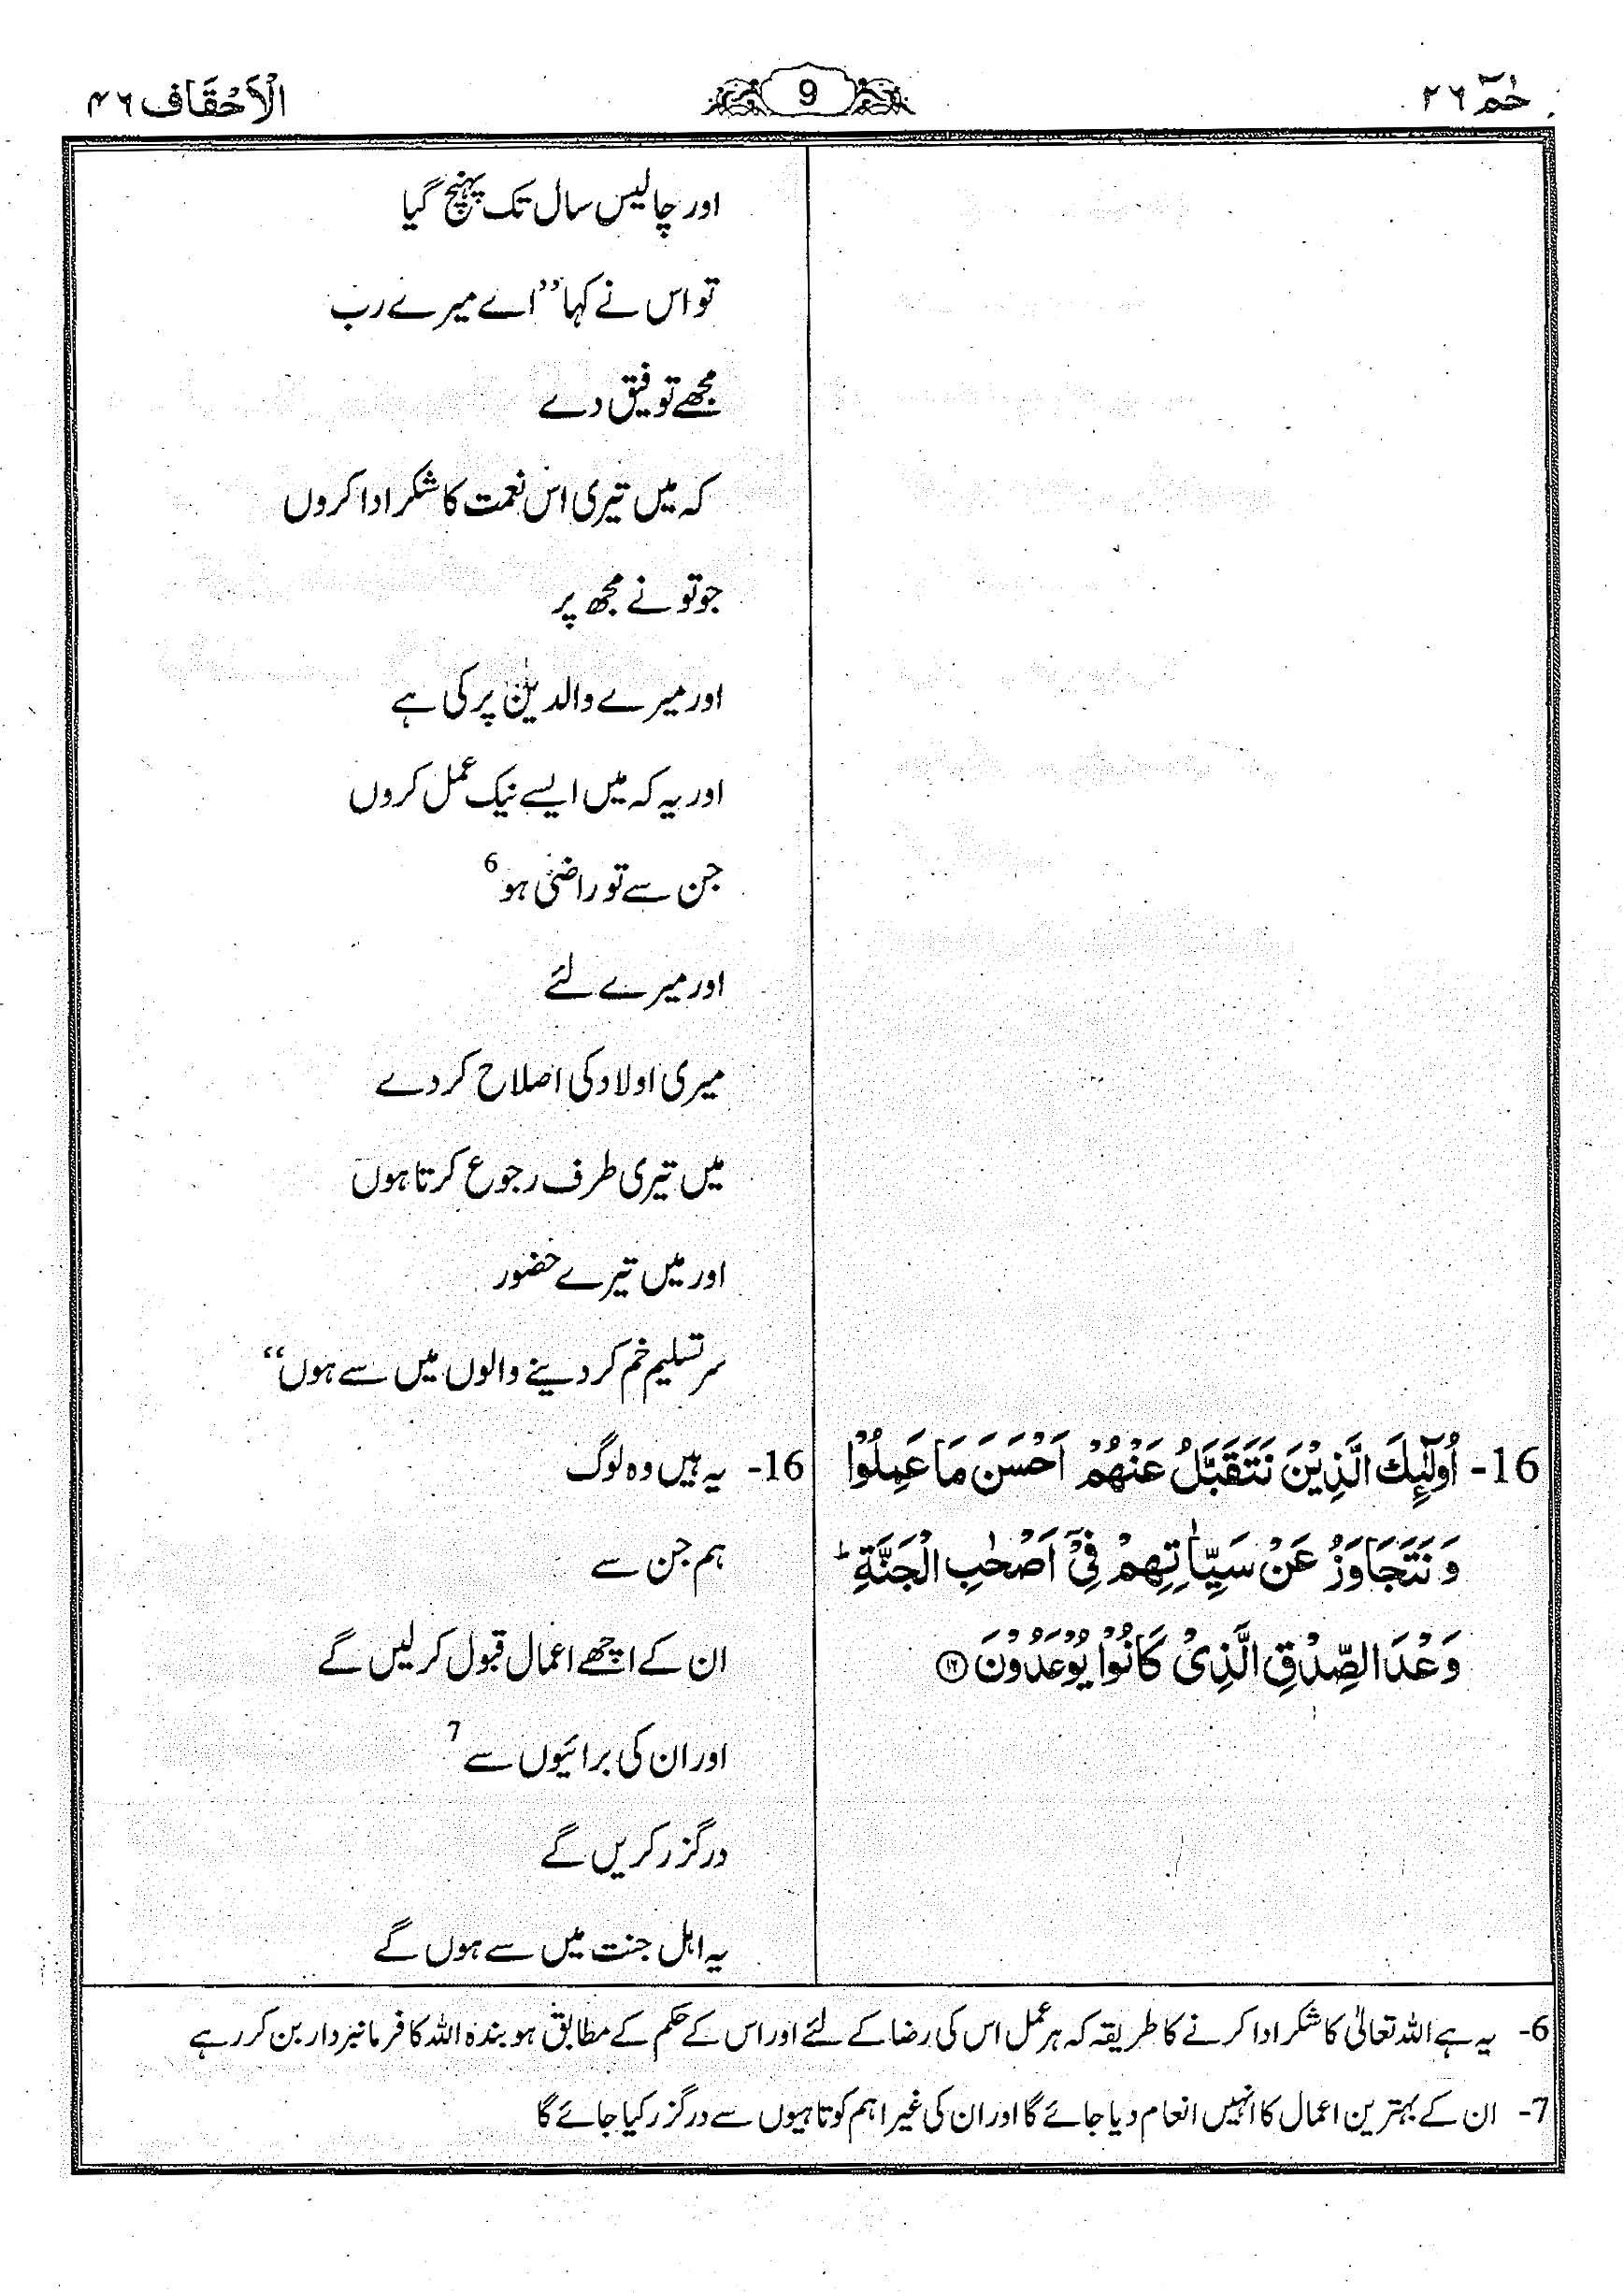 حٰمٓ ۲۶
9
الْاَحْقَاف ۴۶
اور چالیس سال تک پہنچ گیا
تو اس نے کہا ’’اے میرے رب
مجھے توفیق دے
کہ میں تیری اس نعمت کا شکر ادا کروں
جو تو نے مجھ پر
اور میرے والدین پر کی ہے
اور یہ کہ میں ایسے نیک عمل کروں
جن سے تو راضی ہو 6
اور میرے لئے
میری اولاد کی اصلاح کر دے
میں تیری طرف رجوع کرتا ہوں
اور میں تیرے حضور
سر تسلیم خم کر دینے والوں میں سے ہوں‘‘
16- اُولٰٓئِكَ الَّذِيْنَ نَتَقَبَّلُ عَنْهُمْ اَحْسَنَ مَا عَمِلُوْا
وَ نَتَجَاوَزُ عَنْ سَيِّاٰتِهِمْ فِيْٓ اَصْحٰبِ الْجَنَّةِ ؕ
وَعْدَ الصِّدْقِ الَّذِيْ كَانُوْا يُوْعَدُوْنَ ⑯
16- یہ ہیں وہ لوگ
ہم جن سے
ان کے اچھے اعمال قبول کر لیں گے
اور ان کی برائیوں سے 7
درگزر کریں گے
یہ اہل جنت میں سے ہوں گے
6- یہ ہے اللہ تعالیٰ کا شکر ادا کرنے کا طریقہ کہ ہر عمل اس کی رضا کے لئے اور اس کے حکم کے مطابق ہو بندہ اللہ کا فرمانبردار بن کر رہے
7- ان کے بہترین اعمال کا انہیں انعام دیا جائے گا اور ان کی غیر اہم کوتاہیوں سے درگزر کیا جائے گا